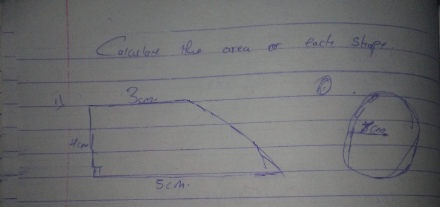 Calculate the area of each shape.
1)
3cm
4cm
5cm.